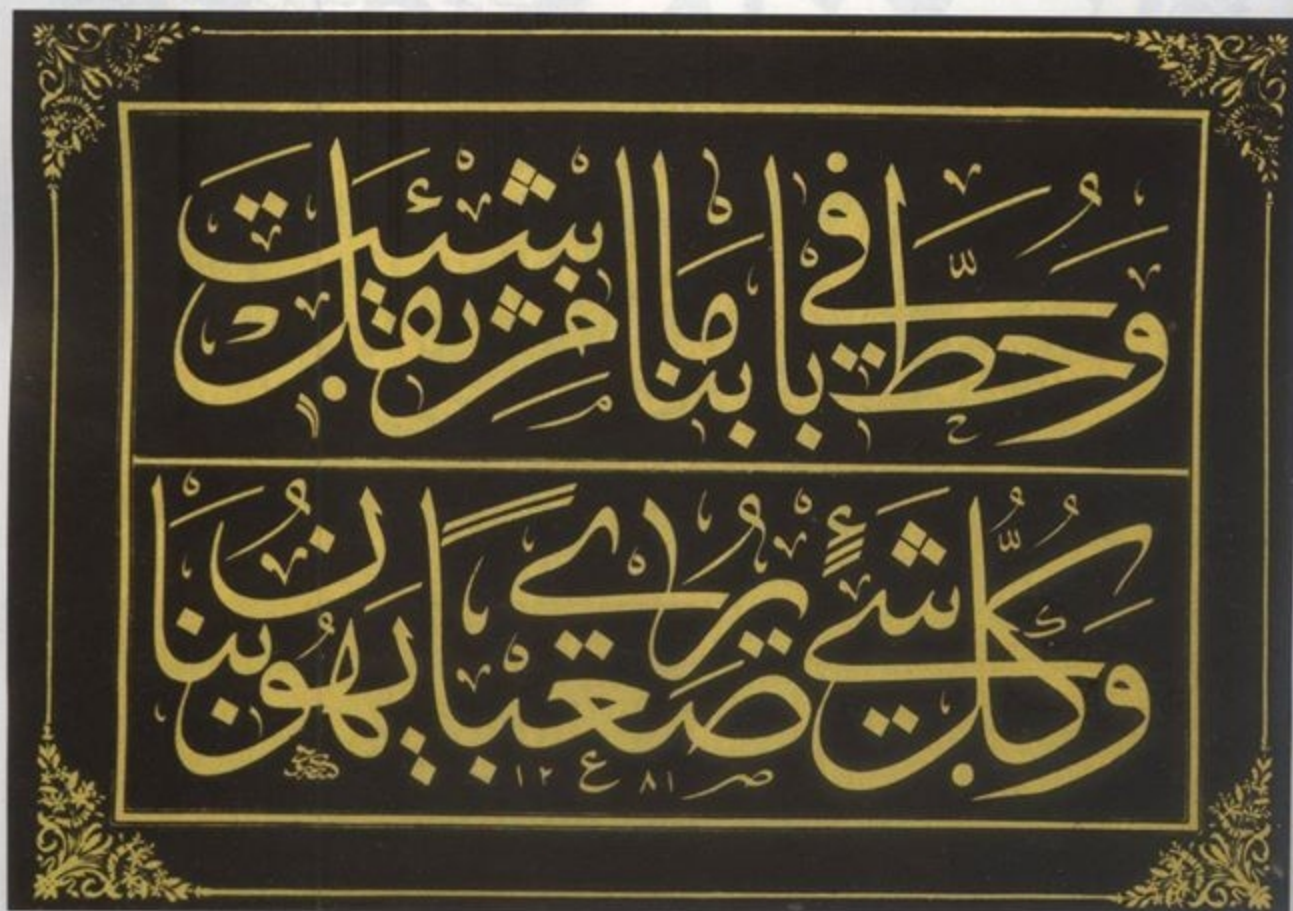 وَحُطَّ في بابنا ما شئت من ثقل
وَكُلُّ شَيْءٍ يُرَى صَعْبًا يَهُونُ بنا
١٢ ٨١